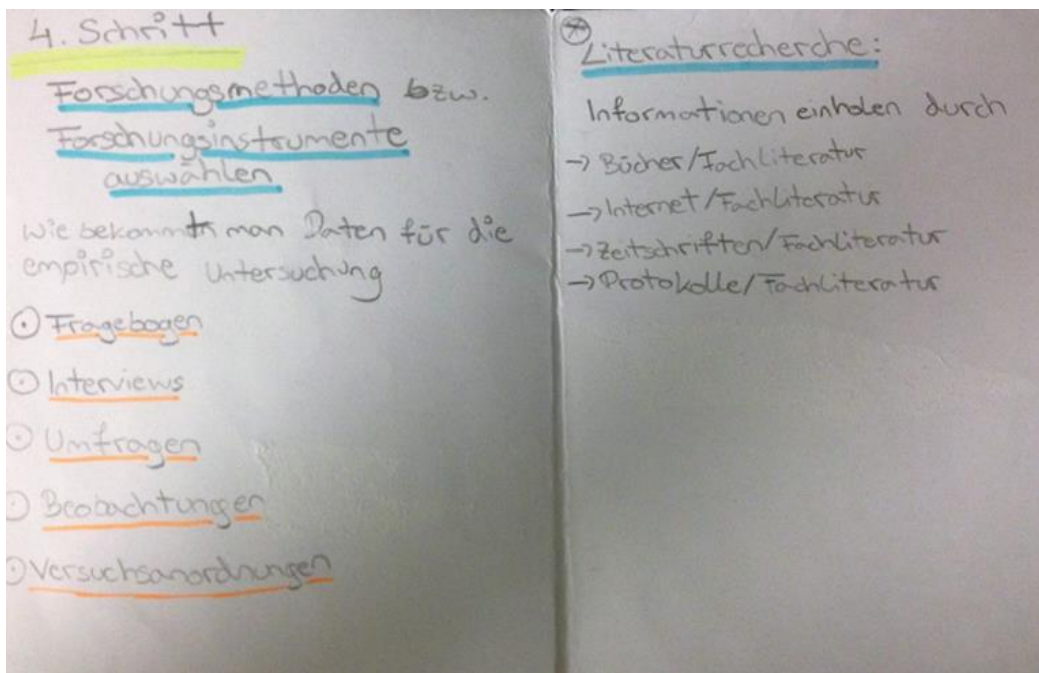 4. Schritt
Forschungsmethoden bzw.
Forschungsinstrumente
auswählen
Wie bekommt man Daten für die
empirische Untersuchung
Fragebogen
Interviews
Umfragen
Beobachtungen
Versuchsanordnungen
Literaturrecherche:
Informationen einholen durch
→ Bücher/Fachliteratur
→ Internet/Fachliteratur
→ Zeitschriften/Fachliteratur
→ Protokolle/Fachliteratur